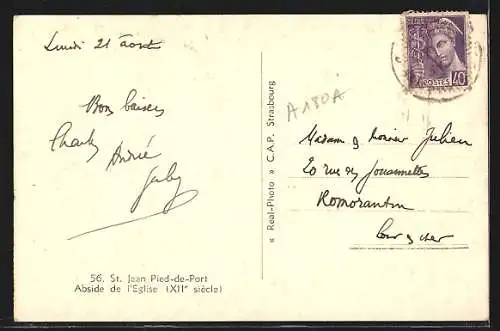 Lundi 21 août
Bons baisers
Charly
André
Gaby
56. St. Jean Pied-de-Port
Abside de l'Eglise (XIIe siècle)
« Real-Photo » C.A.P. Strasbourg
A180A
POSTES
40
Madame & Monsieur Julien
20 rue des Jousmettes
Romorantin
Loir & Cher